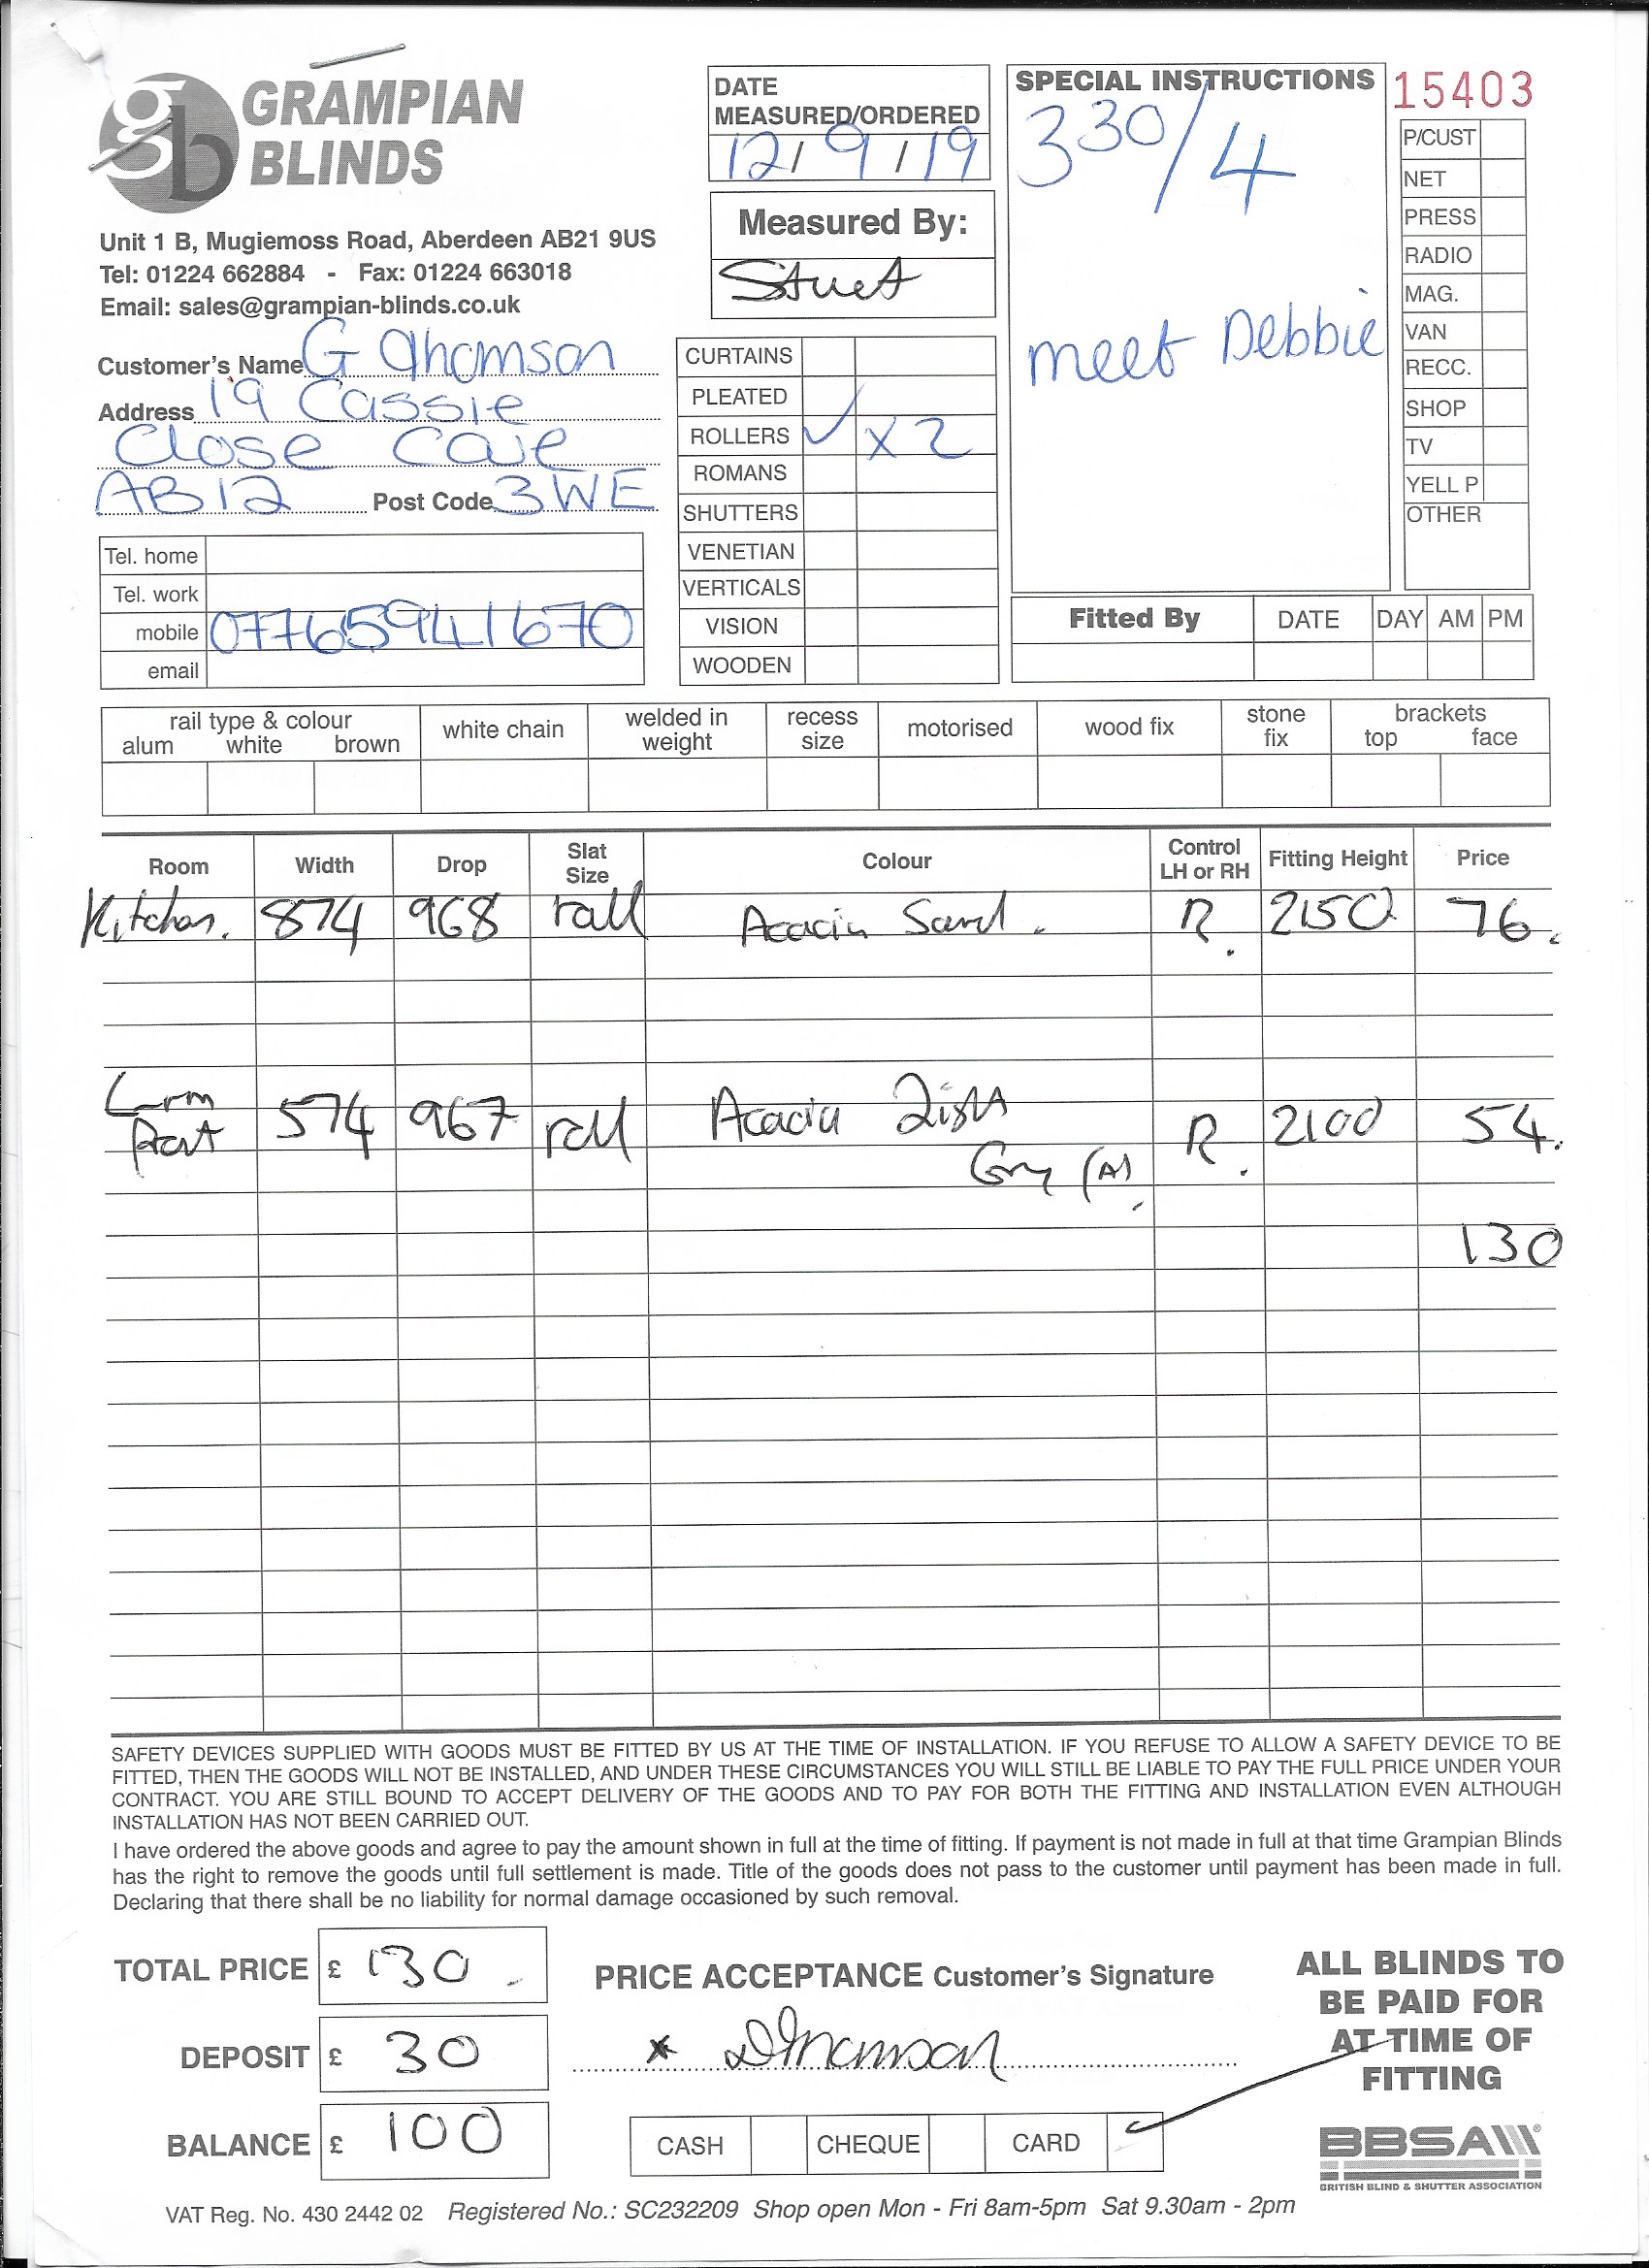 GRAMPIAN
BLINDS
Unit 1 B, Mugiemoss Road, Aberdeen AB21 9US
Tel: 01224 662884 - Fax: 01224 663018
Email: sales@grampian-blinds.co.uk
DATE
MEASURED/ORDERED
12/9/19
Measured By:
SPECIAL INSTRUCTIONS
3 30/4
meet Debbie
15403
P/CUST
NET
PRESS
RADIO
MAG.
VAN
RECC.
SHOP
TV
YELL P
OTHER
Customer's Name G Thomson
Address 19 Cassie
Close Cove
AB12 Post Code 3WE
Tel. home
Tel. work
mobile 07765941670
email
CURTAINS
PLEATED
ROLLERS ✓ x2
ROMANS
SHUTTERS
VENETIAN
VERTICALS
VISION
WOODEN
Fitted By DATE DAY AM PM
rail type & colour white chain welded in weight recess size motorised wood fix stone fix brackets
alum white brown top face
Room Width Drop Slat Size Colour Control LH or RH Fitting Height Price
Kitchen. 874 968 roll Acacia Sand. R. 2150 76.
574 967 roll Acacia Light R. 2100 54.
(A)
130
SAFETY DEVICES SUPPLIED WITH GOODS MUST BE FITTED BY US AT THE TIME OF INSTALLATION. IF YOU REFUSE TO ALLOW A SAFETY DEVICE TO BE
FITTED, THEN THE GOODS WILL NOT BE INSTALLED, AND UNDER THESE CIRCUMSTANCES YOU WILL STILL BE LIABLE TO PAY THE FULL PRICE UNDER YOUR
CONTRACT. YOU ARE STILL BOUND TO ACCEPT DELIVERY OF THE GOODS AND TO PAY FOR BOTH THE FITTING AND INSTALLATION EVEN ALTHOUGH
INSTALLATION HAS NOT BEEN CARRIED OUT.
I have ordered the above goods and agree to pay the amount shown in full at the time of fitting. If payment is not made in full at that time Grampian Blinds
has the right to remove the goods until full settlement is made. Title of the goods does not pass to the customer until payment has been made in full.
Declaring that there shall be no liability for normal damage occasioned by such removal.
TOTAL PRICE £ 130
DEPOSIT £ 30
BALANCE £ 100
PRICE ACCEPTANCE Customer's Signature
x DThomson
CASH CHEQUE CARD ✓
ALL BLINDS TO
BE PAID FOR
AT TIME OF
FITTING
BBSA
BRITISH BLIND & SHUTTER ASSOCIATION
VAT Reg. No. 430 2442 02 Registered No.: SC232209 Shop open Mon - Fri 8am-5pm Sat 9.30am - 2pm